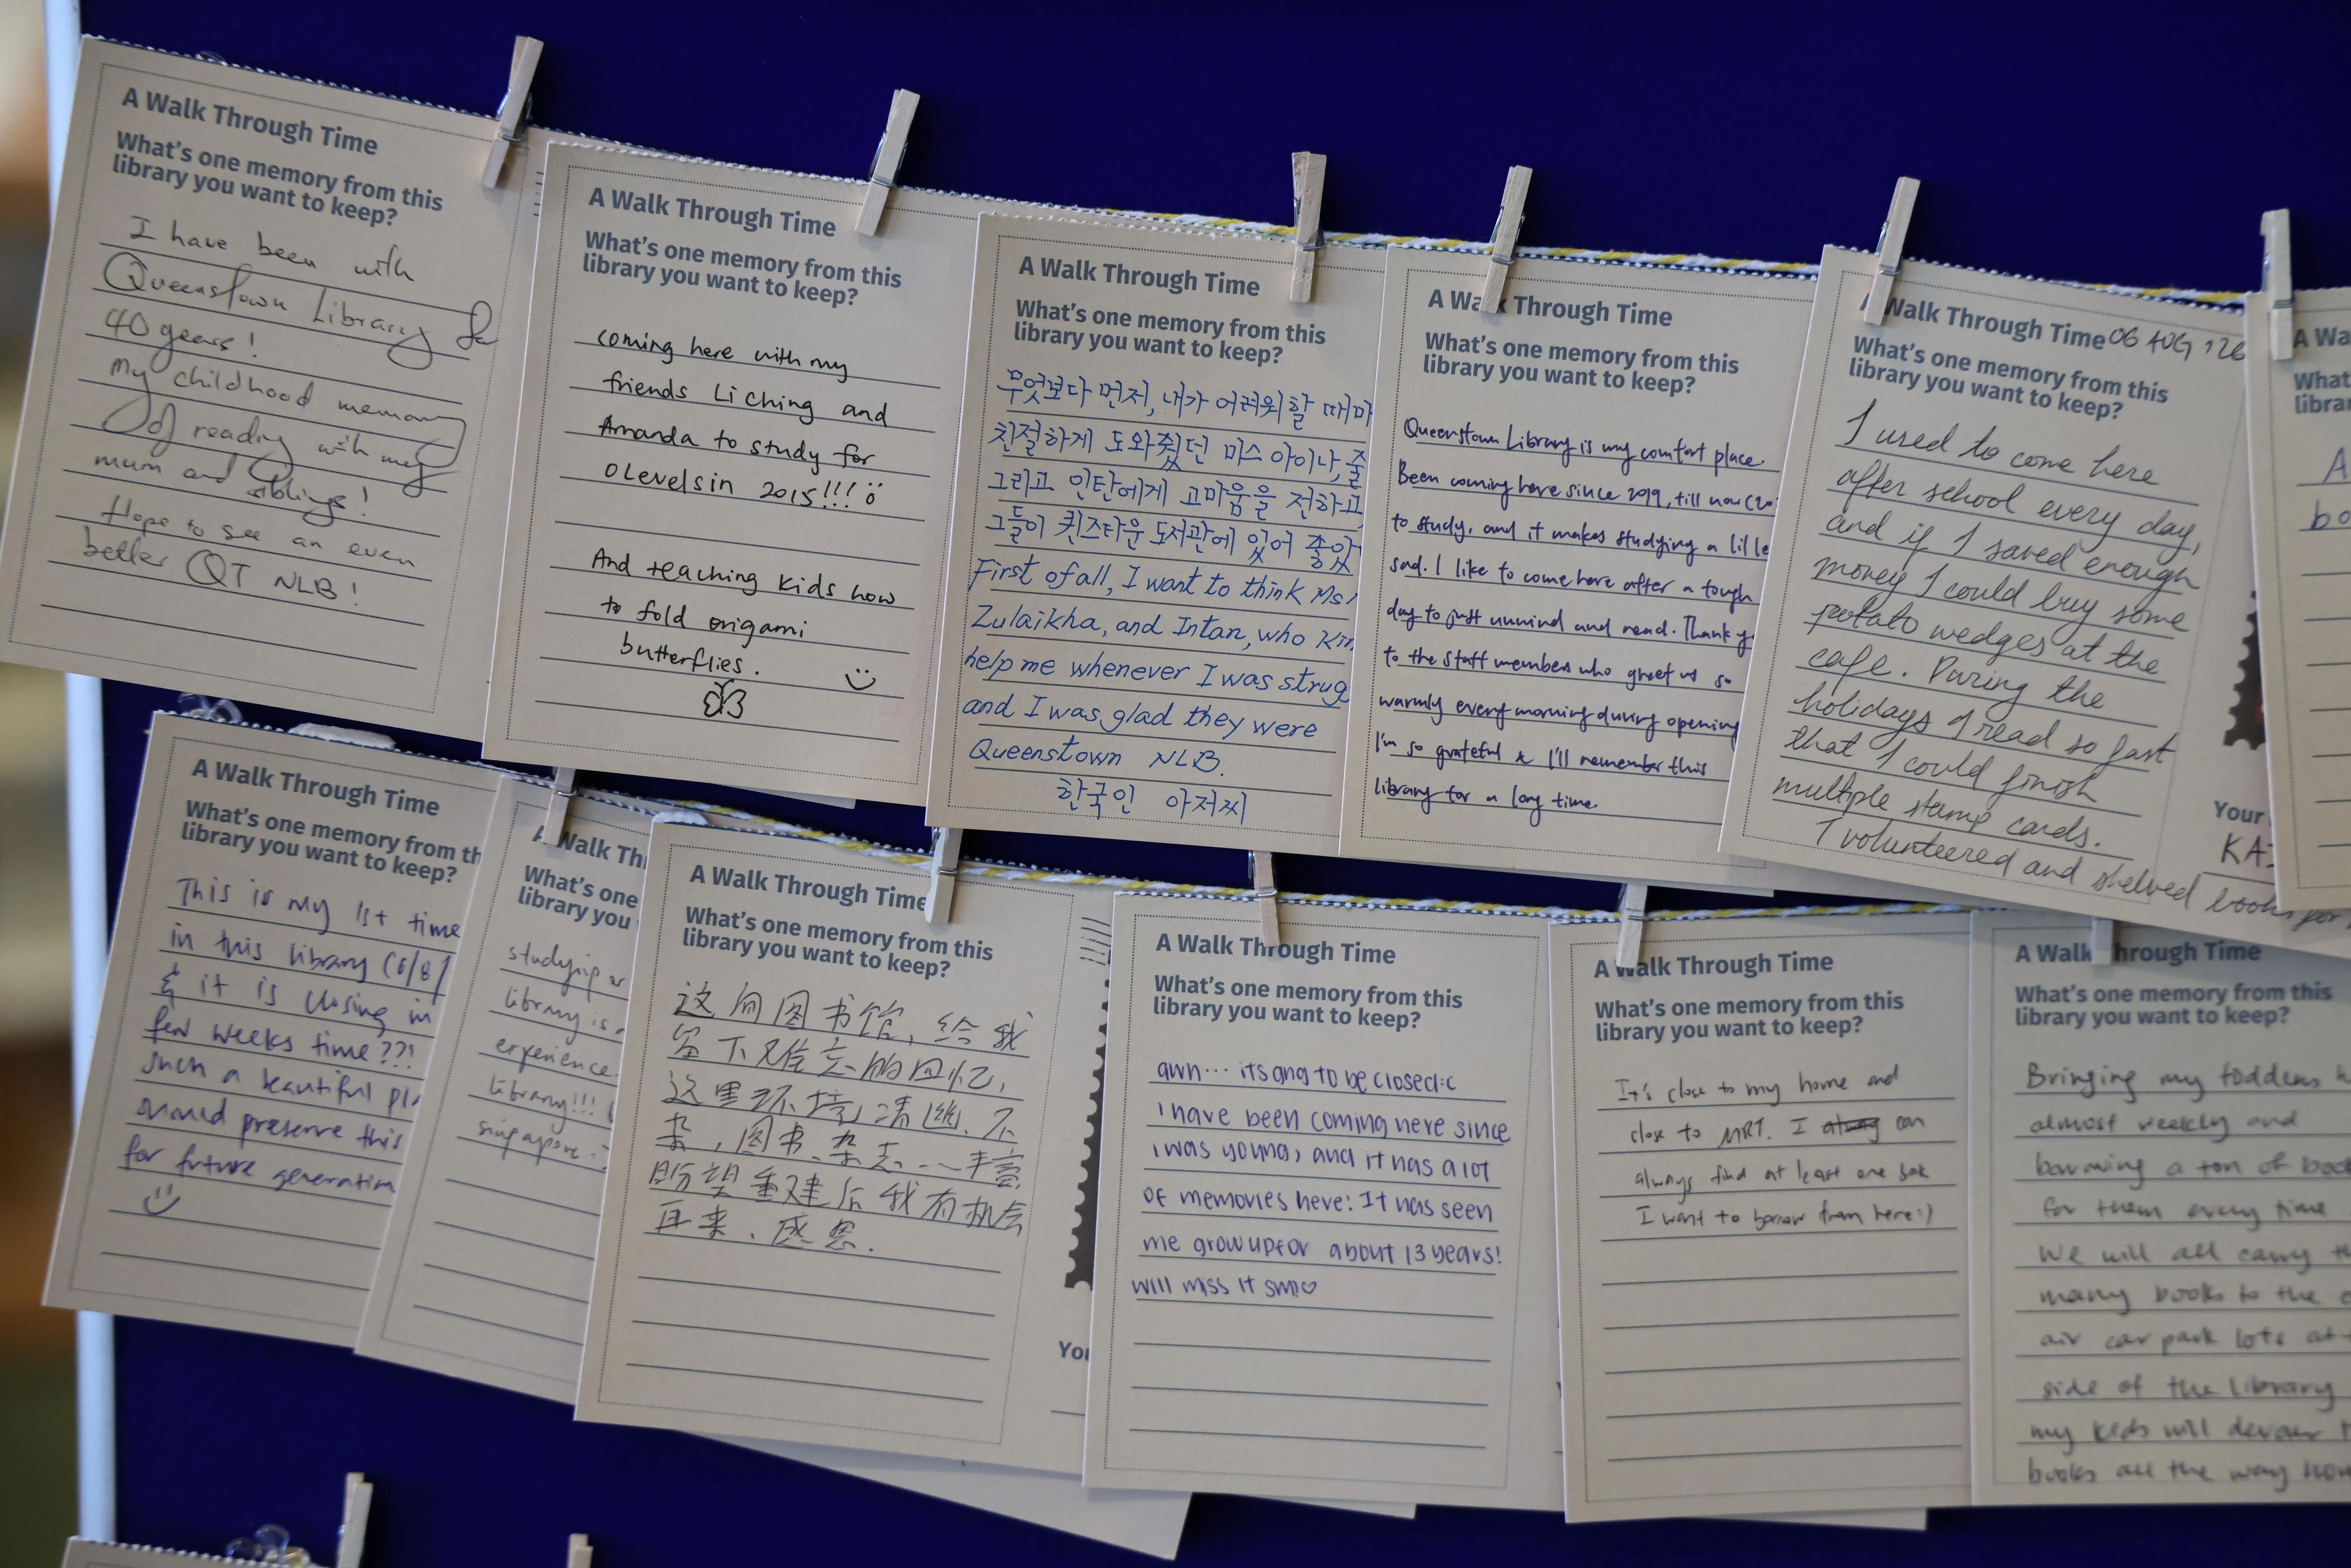 A Walk Through Time
What's one memory from this
library you want to keep?
I have been with
Queenstown Library for
40 years!
My childhood memory
of reading with my
mum and siblings!
Hope to see an even
better QT NLB!
A Walk Through Time
What's one memory from this
library you want to keep?
coming here with my
friends Li Ching and
Amanda to study for
O Levels in 2015!!!
And teaching kids how
to fold origami
butterflies.
A Walk Through Time
What's one memory from this
library you want to keep?
무엇보다 먼저, 내가 어려워할 때마
친절하게 도와줬던 미스 아이나, 줄
그리고 인탄에게 고마움을 전하고
그들이 퀸즈타운 도서관에 있어 좋았
First of all, I want to think Ms
Zulaikha, and Intan, who kin
help me whenever I was strug
and I was glad they were
Queenstown NLB.
한국인 아저씨
A Walk Through Time
What's one memory from this
library you want to keep?
Queenstown Library is my comfort place.
Been coming here since 2019, till now (20
to study, and it makes studying a lil le
sad. I like to come here after a tough
day to just unwind and read. Thank y
to the staff members who greet us so
warmly every morning during opening
I'm so grateful & I'll remember this
library for a long time.
A Walk Through Time 06 AUG '26
What's one memory from this
library you want to keep?
I used to come here
after school every day,
and if I saved enough
money I could buy some
potato wedges at the
cafe. During the
holidays I read so fast
that I could finish
multiple stamp cards.
I volunteered and shelved books for
Your
KA
A Wa
What'
librar
A
bo
A Walk Through Time
What's one memory from th
library you want to keep?
This is my 1st time
in this library (6/8/
& it is closing in
few weeks time??!
such a beautiful pla
should preserve this
for future generation
A Walk Th
What's one
library you
studying
library is
experience
library!!!
singapore
A Walk Through Time
What's one memory from this
library you want to keep?
这间图书馆，给我
留下难忘的回忆，
这里环境清幽、不
杂，图书、杂志……丰富
盼望重建后我有机会
再来、感恩.
You
A Walk Through Time
What's one memory from this
library you want to keep?
awh... its gng to be closed :c
i have been coming here since
i was young, and it has a lot
of memories here! It has seen
me grow up for about 13 years!
will miss it sm!♡
A Walk Through Time
What's one memory from this
library you want to keep?
It's close to my home and
close to MRT. I can
always find at least one book
I want to borrow from here :)
A Walk Through Time
What's one memory from this
library you want to keep?
Bringing my toddlers h
almost weekly and
borrowing a ton of book
for them every time
We will all carry th
many books to the o
air car park lots at
side of the library
my kids will devour t
books all the way hom